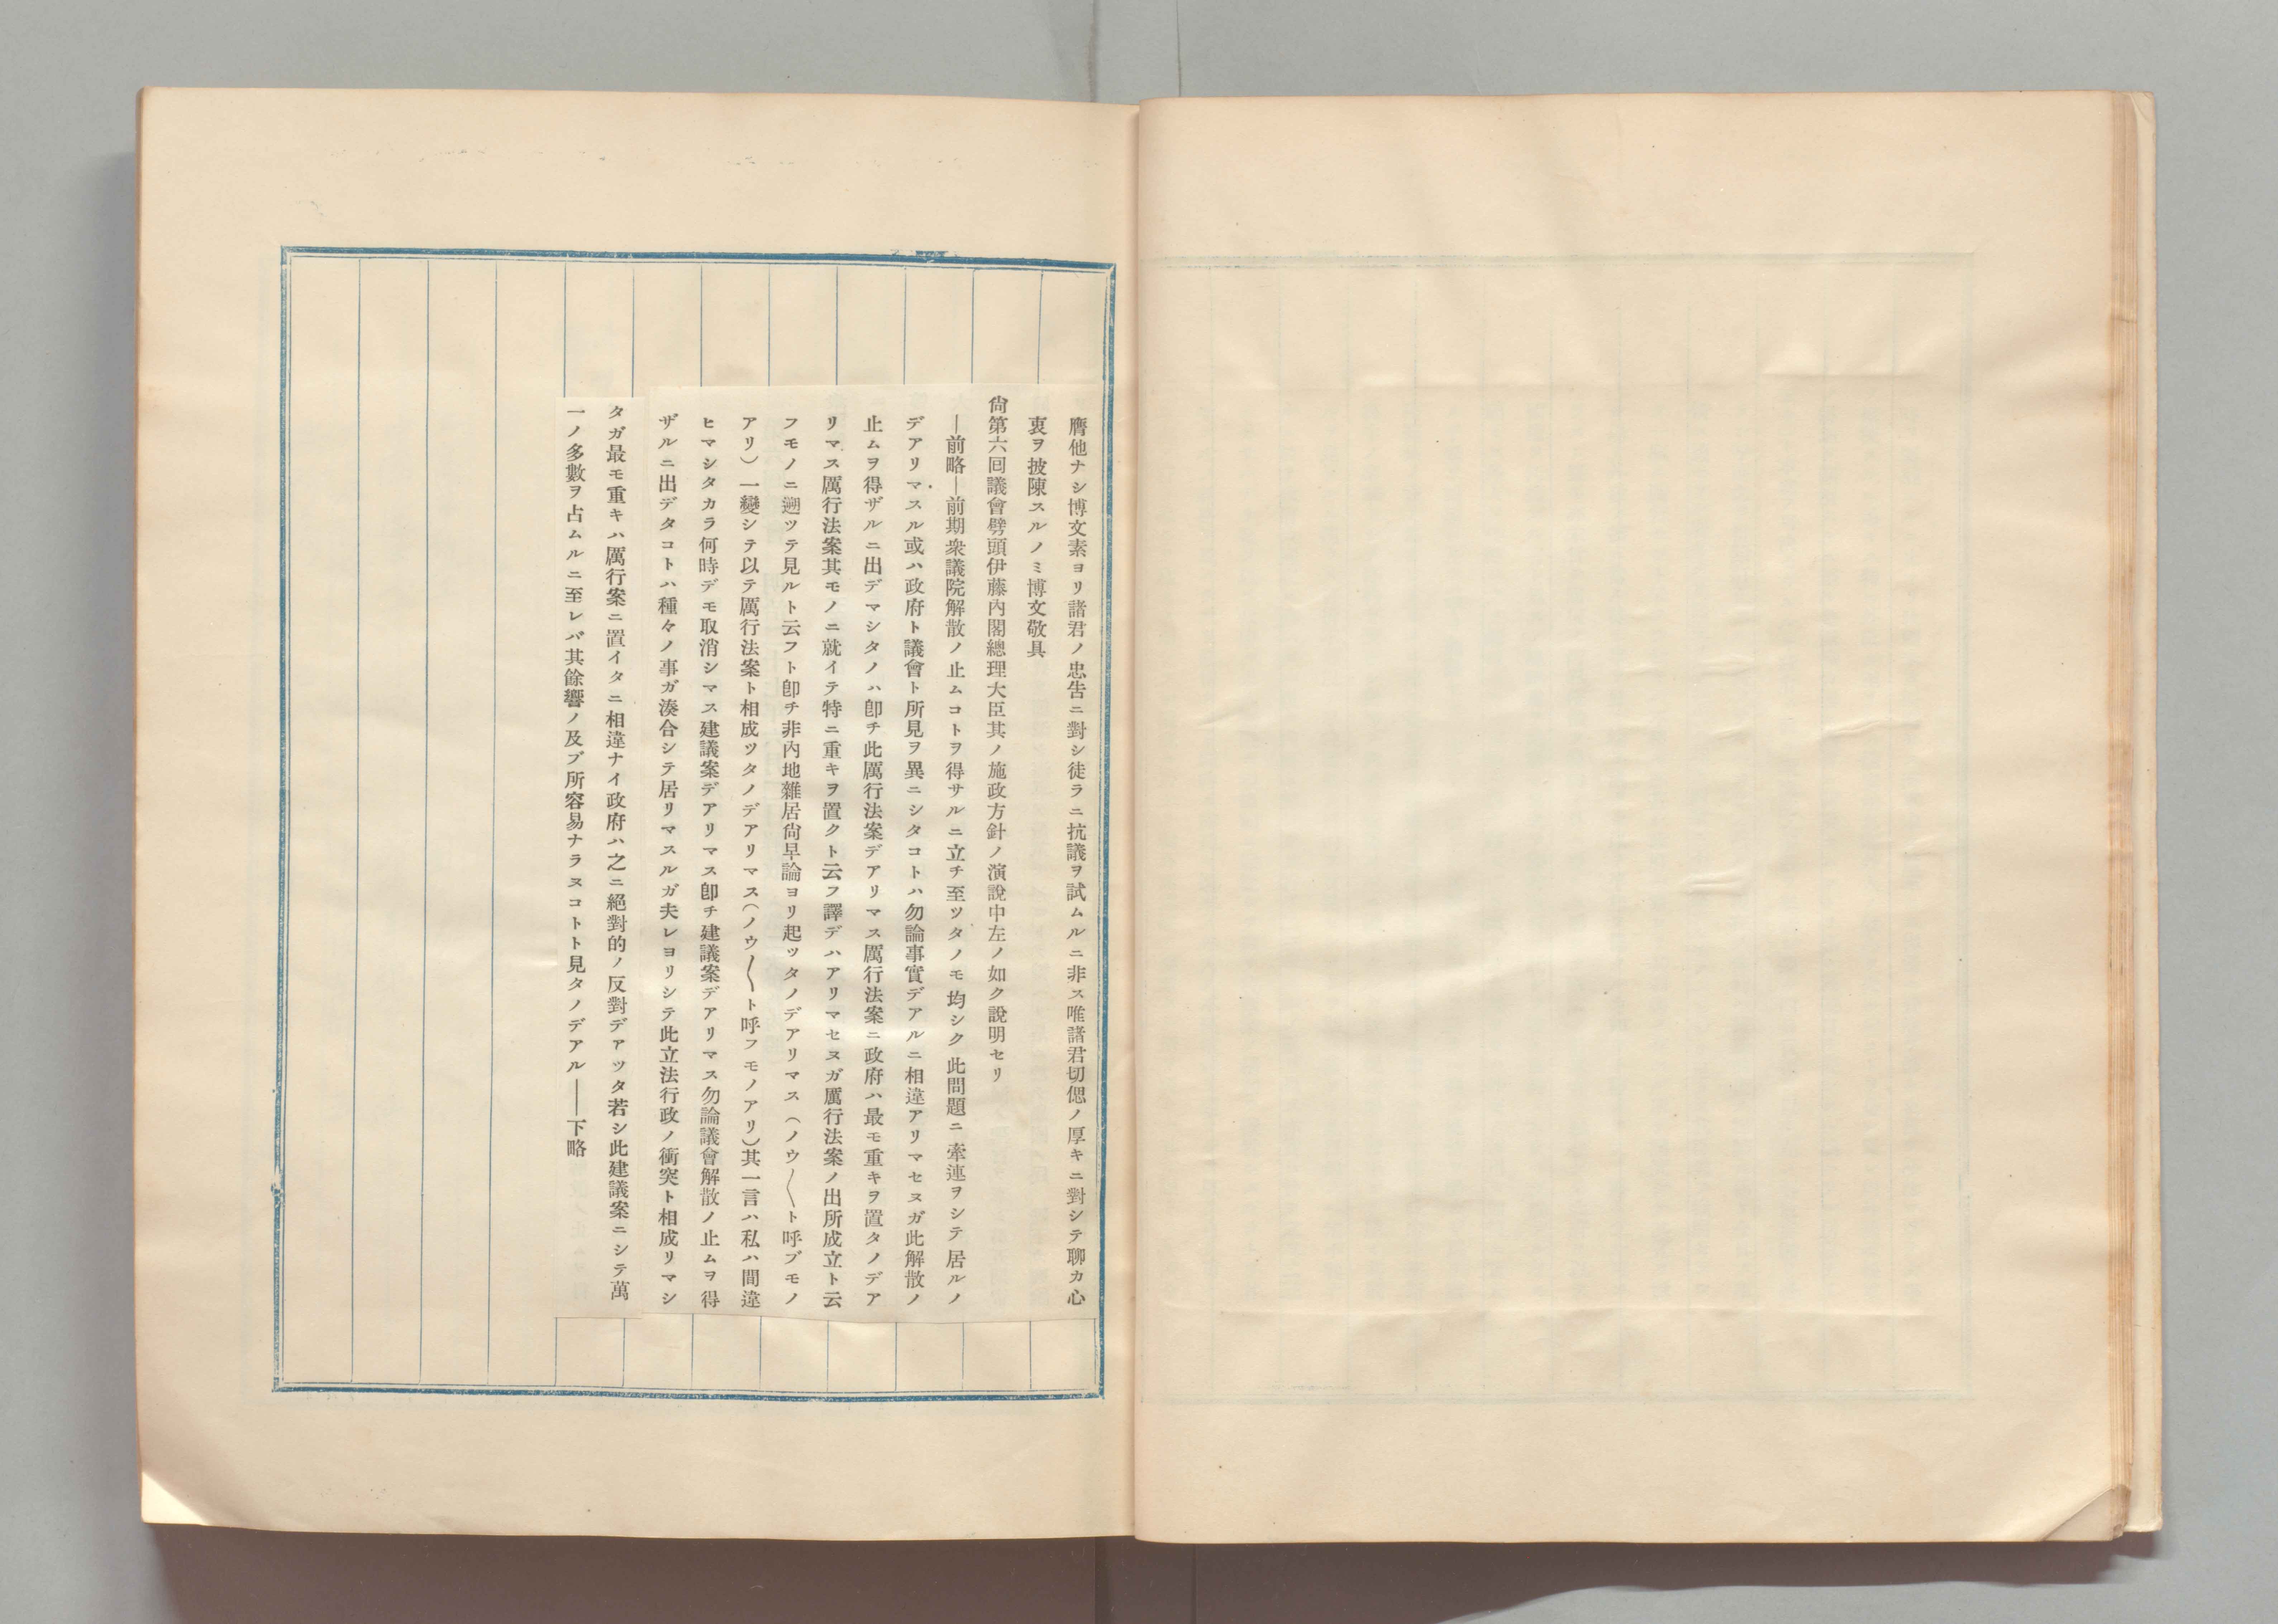 膺他ナシ博文素ヨリ諸君ノ忠告ニ對シ徒ラニ抗議ヲ試ムルニ非ス唯諸君切偲ノ厚キニ對シテ聊カ心
衷ヲ披陳スルノミ博文敬具
尙第六回議會劈頭伊藤內閣總理大臣其ノ施政方針ノ演說中左ノ如ク說明セリ
―前略―前期衆議院解散ノ止ムコトヲ得サルニ立チ至ツタノモ均シク此問題ニ牽連ヲシテ居ルノ
デアリマスル或ハ政府ト議會ト所見ヲ異ニシタコトハ勿論事實デアルニ相違アリマセヌガ此解散ノ
止ムヲ得ザルニ出デマシタノハ卽チ此厲行法案デアリマス厲行法案ニ政府ハ最モ重キヲ置タノデア
リマス厲行法案其モノニ就イテ特ニ重キヲ置クト云フ譯デハアリマセヌガ厲行法案ノ出所成立ト云
フモノニ遡ツテ見ルト云フト卽チ非內地雜居尙早論ヨリ起ツタノデアリマス（ノウ〱ト呼ブモノ
アリ）一變シテ以テ厲行法案ト相成ツタノデアリマス（ノウ〱ト呼フモノアリ）其一言ハ私ハ間違
ヒマシタカラ何時デモ取消シマス建議案デアリマス卽チ建議案デアリマス勿論議會解散ノ止ムヲ得
ザルニ出デタコトハ種々ノ事ガ湊合シテ居リマスルガ夫レヨリシテ此立法行政ノ衝突ト相成リマシ
タガ最モ重キハ厲行案ニ置イタニ相違ナイ政府ハ之ニ絕對的ノ反對デアツタ若シ此建議案ニシテ萬
一ノ多數ヲ占ムルニ至レバ其餘響ノ及ブ所容易ナラヌコトト見タノデアル――下略